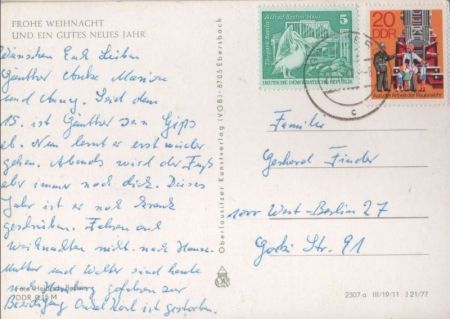 FROHE WEIHNACHT
UND EIN GUTES NEUES JAHR
Wünschen Euch Lieben
Günther Anke Marion
und Anny. Seid dem
15. ist Günther sein Gips
ab. Nun lernt er erst wieder
gehen. Abends wird der Fuß
aber immer noch dick. Dieses
Jahr ist er noch krank
geschrieben. Fahren auf
Weihnachten nicht nach Hause.
Mutter und Walter sind heute
nach gefahren zur
Beerdigung Onkel Karl ist gestorben.
Foto:
DDR 0,15 M
Oberlausitzer Kunstverlag (VOB) · 8705 Ebersbach
Alfred-Brehm-Haus
Tierpark Berlin
5
DEUTSCHE DEMOKRATISCHE REPUBLIK
20
DDR
Aus der Arbeit der Feuerwehr
c
Familie
Gerhard Finder
1000 West-Berlin 27
Gorki Str. 91
2307 a III/19/11 J 21/77